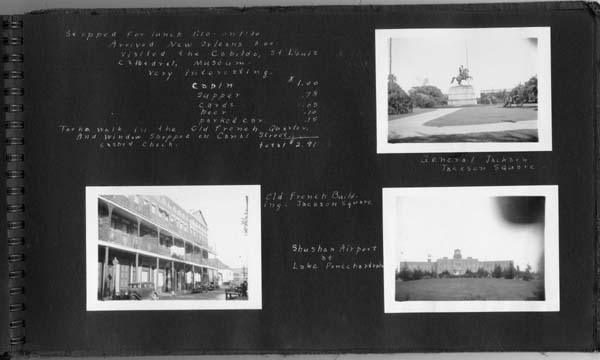 Stopped for lunch 1:10 - on 1:30
Arrived New Orleans 2:00
Visited the Cabildo, St. Louis
Cathedral, Museum -
Very interesting.
Cabin $1.00
Supper .75
Cards .05
Beer .10
parked car .15
Took a walk in the Old French Quarter,
And Window Shopped on Canal Street,
cashed check. total $2.91
General Jackson
Jackson Square
Old French Build-
ing. Jackson Square
Shushan Airport
at
Lake Pontchartrain